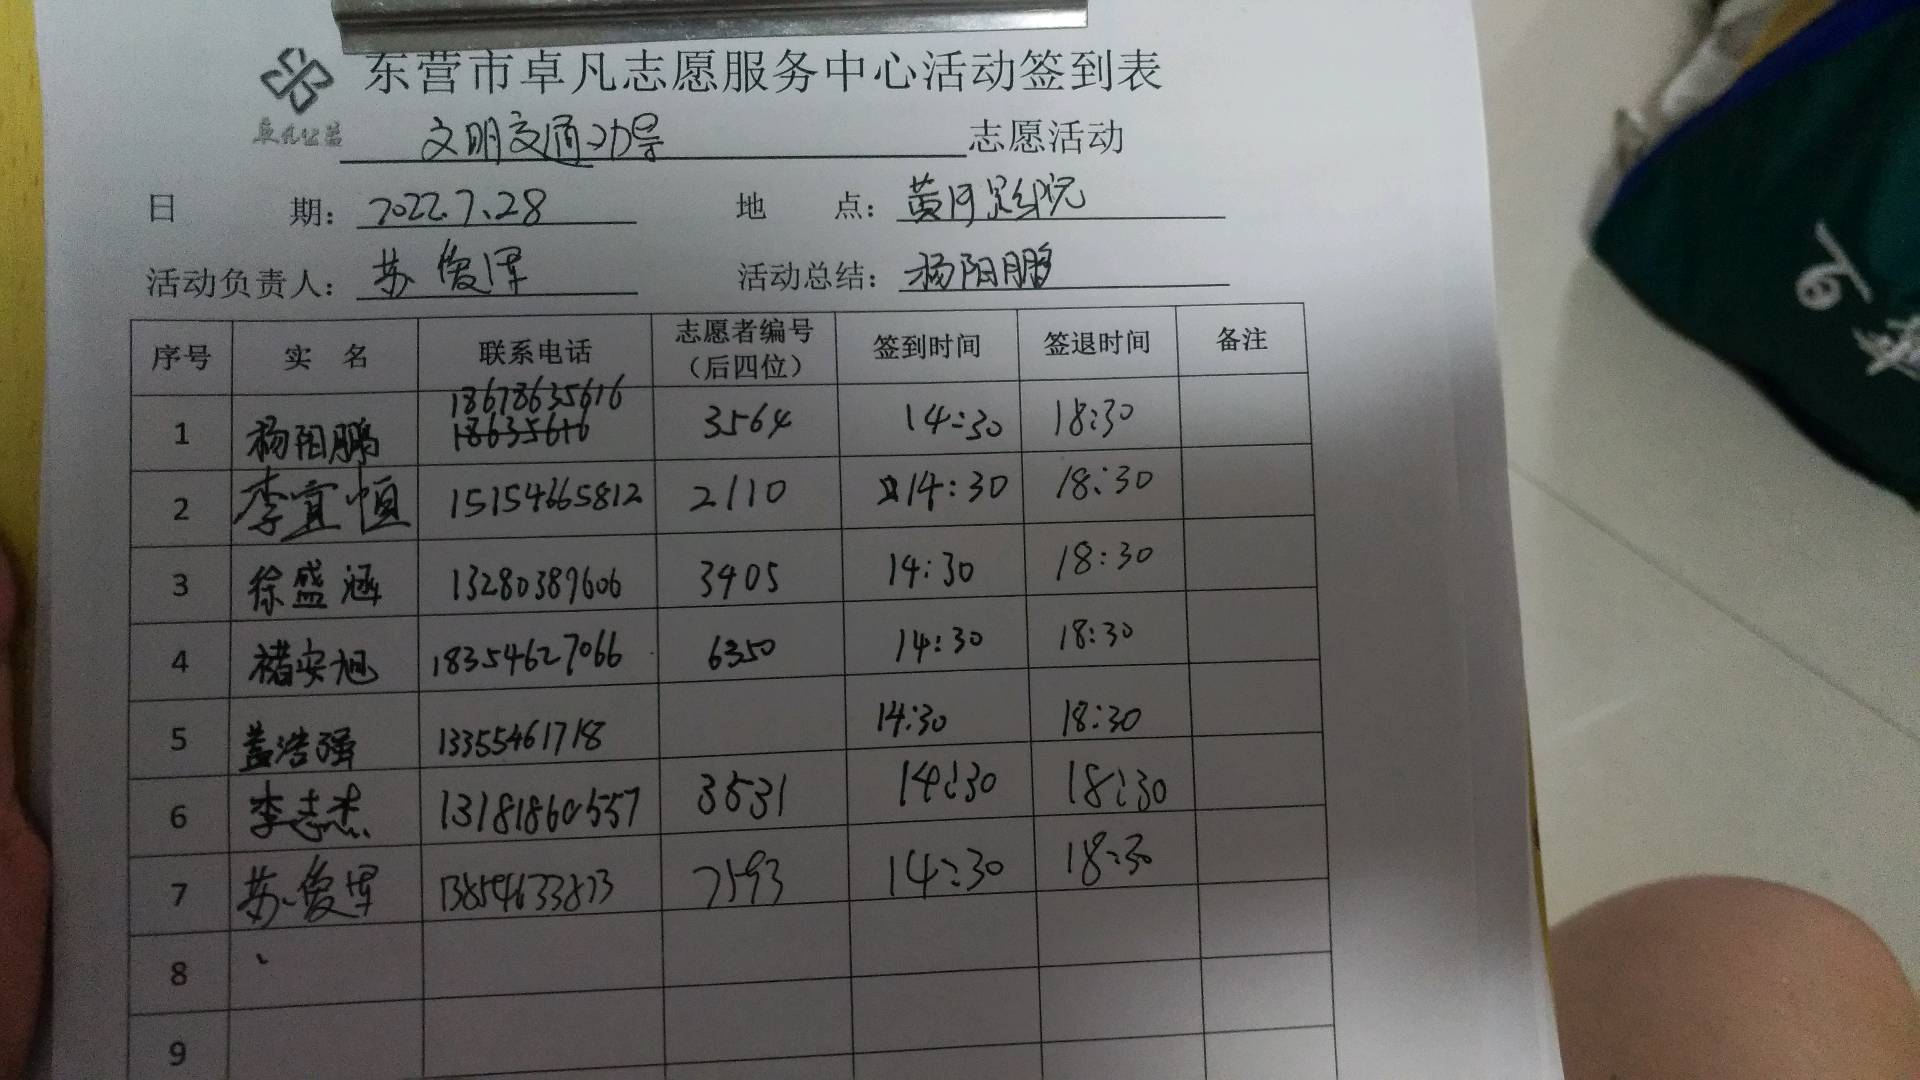 东营市卓凡志愿服务中心活动签到表
卓凡公益 文明交通劝导 志愿活动
日 期: 2022.7.28 地 点: 黄河影院
活动负责人: 苏俊泽 活动总结: 杨阳鹏
序号 实 名 联系电话 志愿者编号(后四位) 签到时间 签退时间 备注
1 杨阳鹏 18678635616 18635616 3564 14:30 18:30
2 李宜恒 15154665812 2110 14:30 18:30
3 徐盛涵 13280389606 3405 14:30 18:30
4 褚实旭 18354627066 6350 14:30 18:30
5 盖浩强 13355461718 14:30 18:30
6 李志杰 13181860557 3531 14:30 18:30
7 苏俊泽 13854633873 7593 14:30 18:30
8
9